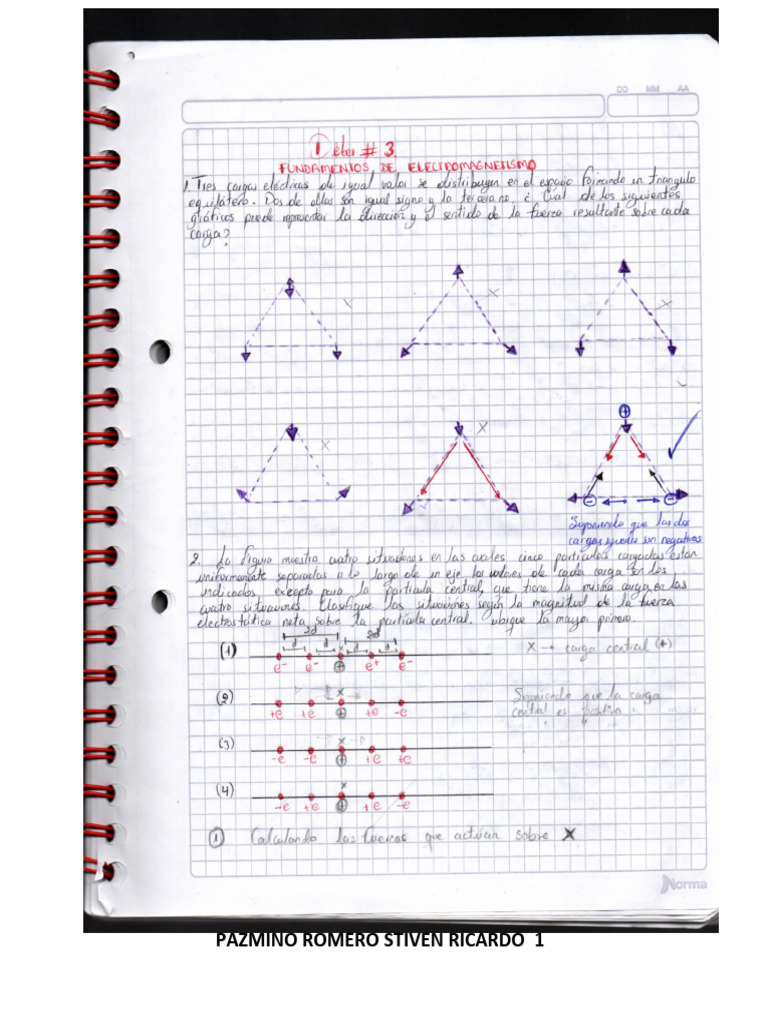 DD MM AA
Deber # 3.
FUNDAMENTOS DE ELECTROMAGNETISMO
1. Tres cargas eléctricas de igual valor se distribuyen en el espacio formando un triangulo
equilátero. Dos de ellas son igual signo y la tercera no, ¿Cual de los siguientes
gráficos puede representar la dirección y el sentido de la fuerza resultante sobre cada
carga?
x x x
x x
+
- -
Suponiendo que las dos
cargas iguales son negativas
2. La Figura muestra cuatro situaciones en las cuales cinco partículas cargadas estan
uniformemente separadas a lo largo de un eje los valores de cada carga son los
indicados, excepto para la partícula central, que tiene la misma carga en las
cuatro situaciones. Clasifique las situaciones según la magnitud de la fuerza
electrostática neta sobre la partícula central. ubique la mayor primero.
2d 2d
(1) d d x d d
e- e- + e+ e-
x → carga central (+)
(2) x
+e +e + +e -e
Suponiendo que la carga
central es positiva
(3) x
-e -e + +e +e
(4) x
-e +e + +e -e
① Calculando las fuerzas que actuan sobre x
Norma
PAZMINO ROMERO STIVEN RICARDO 1